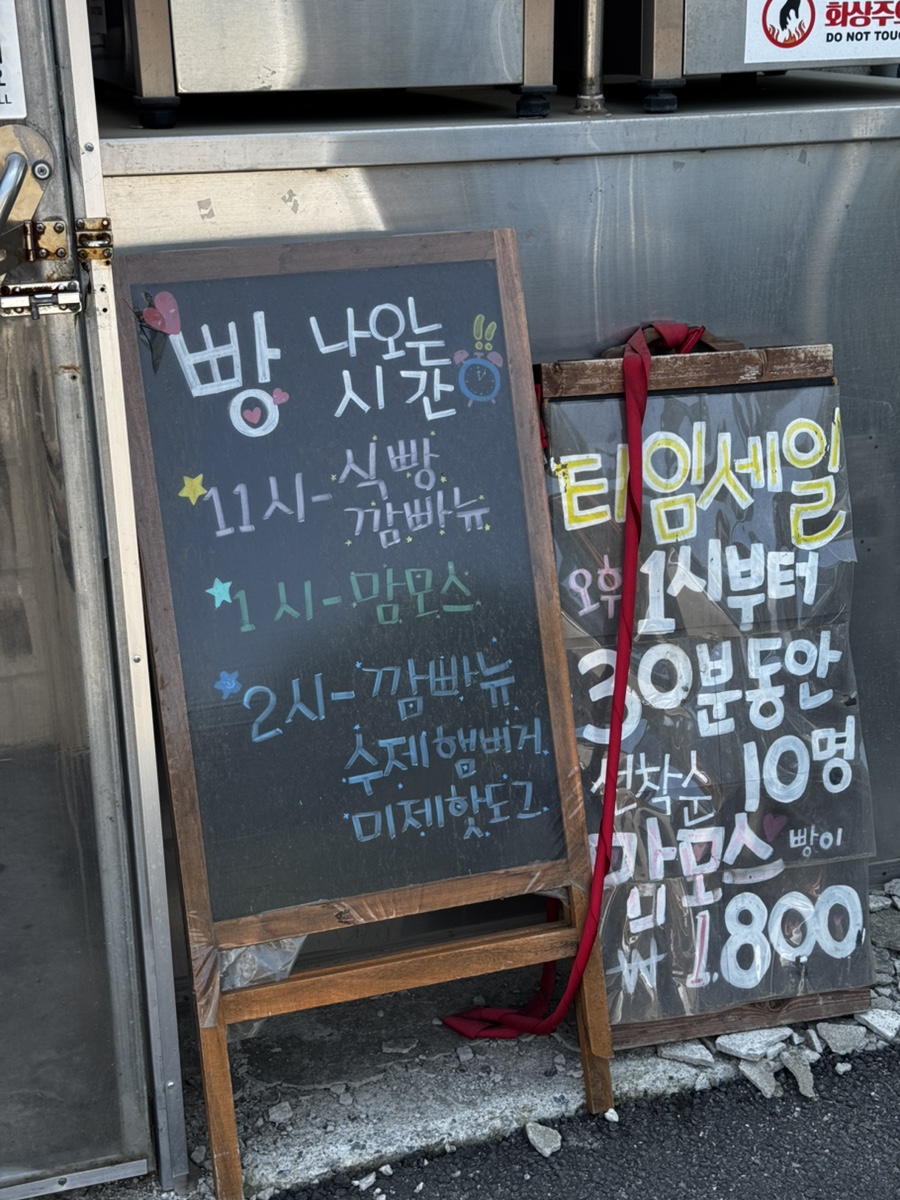 화상주의
DO NOT TOU
LL
빵 나오는
시간
11시-식빵
깜빠뉴
1시-맘모스
2시-깜빠뉴
수제햄버거
미제핫도그
타임세일
오후 1시부터
30분동안
선착순 10명
맘모스 빵이
₩ 1.800